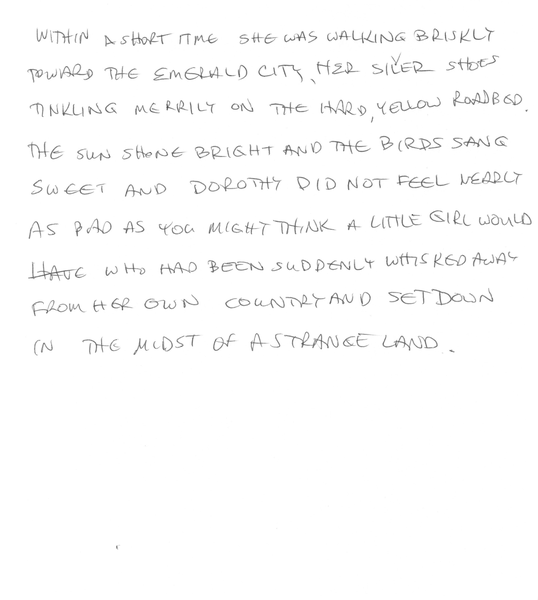 WITHIN A SHORT TIME SHE WAS WALKING BRISKLY
TOWARD THE EMERALD CITY, HER SILVER SHOES
TINKLING MERRILY ON THE HARD, YELLOW ROADBED.
THE SUN SHONE BRIGHT AND THE BIRDS SANG
SWEET AND DOROTHY DID NOT FEEL NEARLY
AS BAD AS YOU MIGHT THINK A LITTLE GIRL WOULD
HAVE WHO HAD BEEN SUDDENLY WHISKED AWAY
FROM HER OWN COUNTRY AND SET DOWN
IN THE MIDST OF A STRANGE LAND.